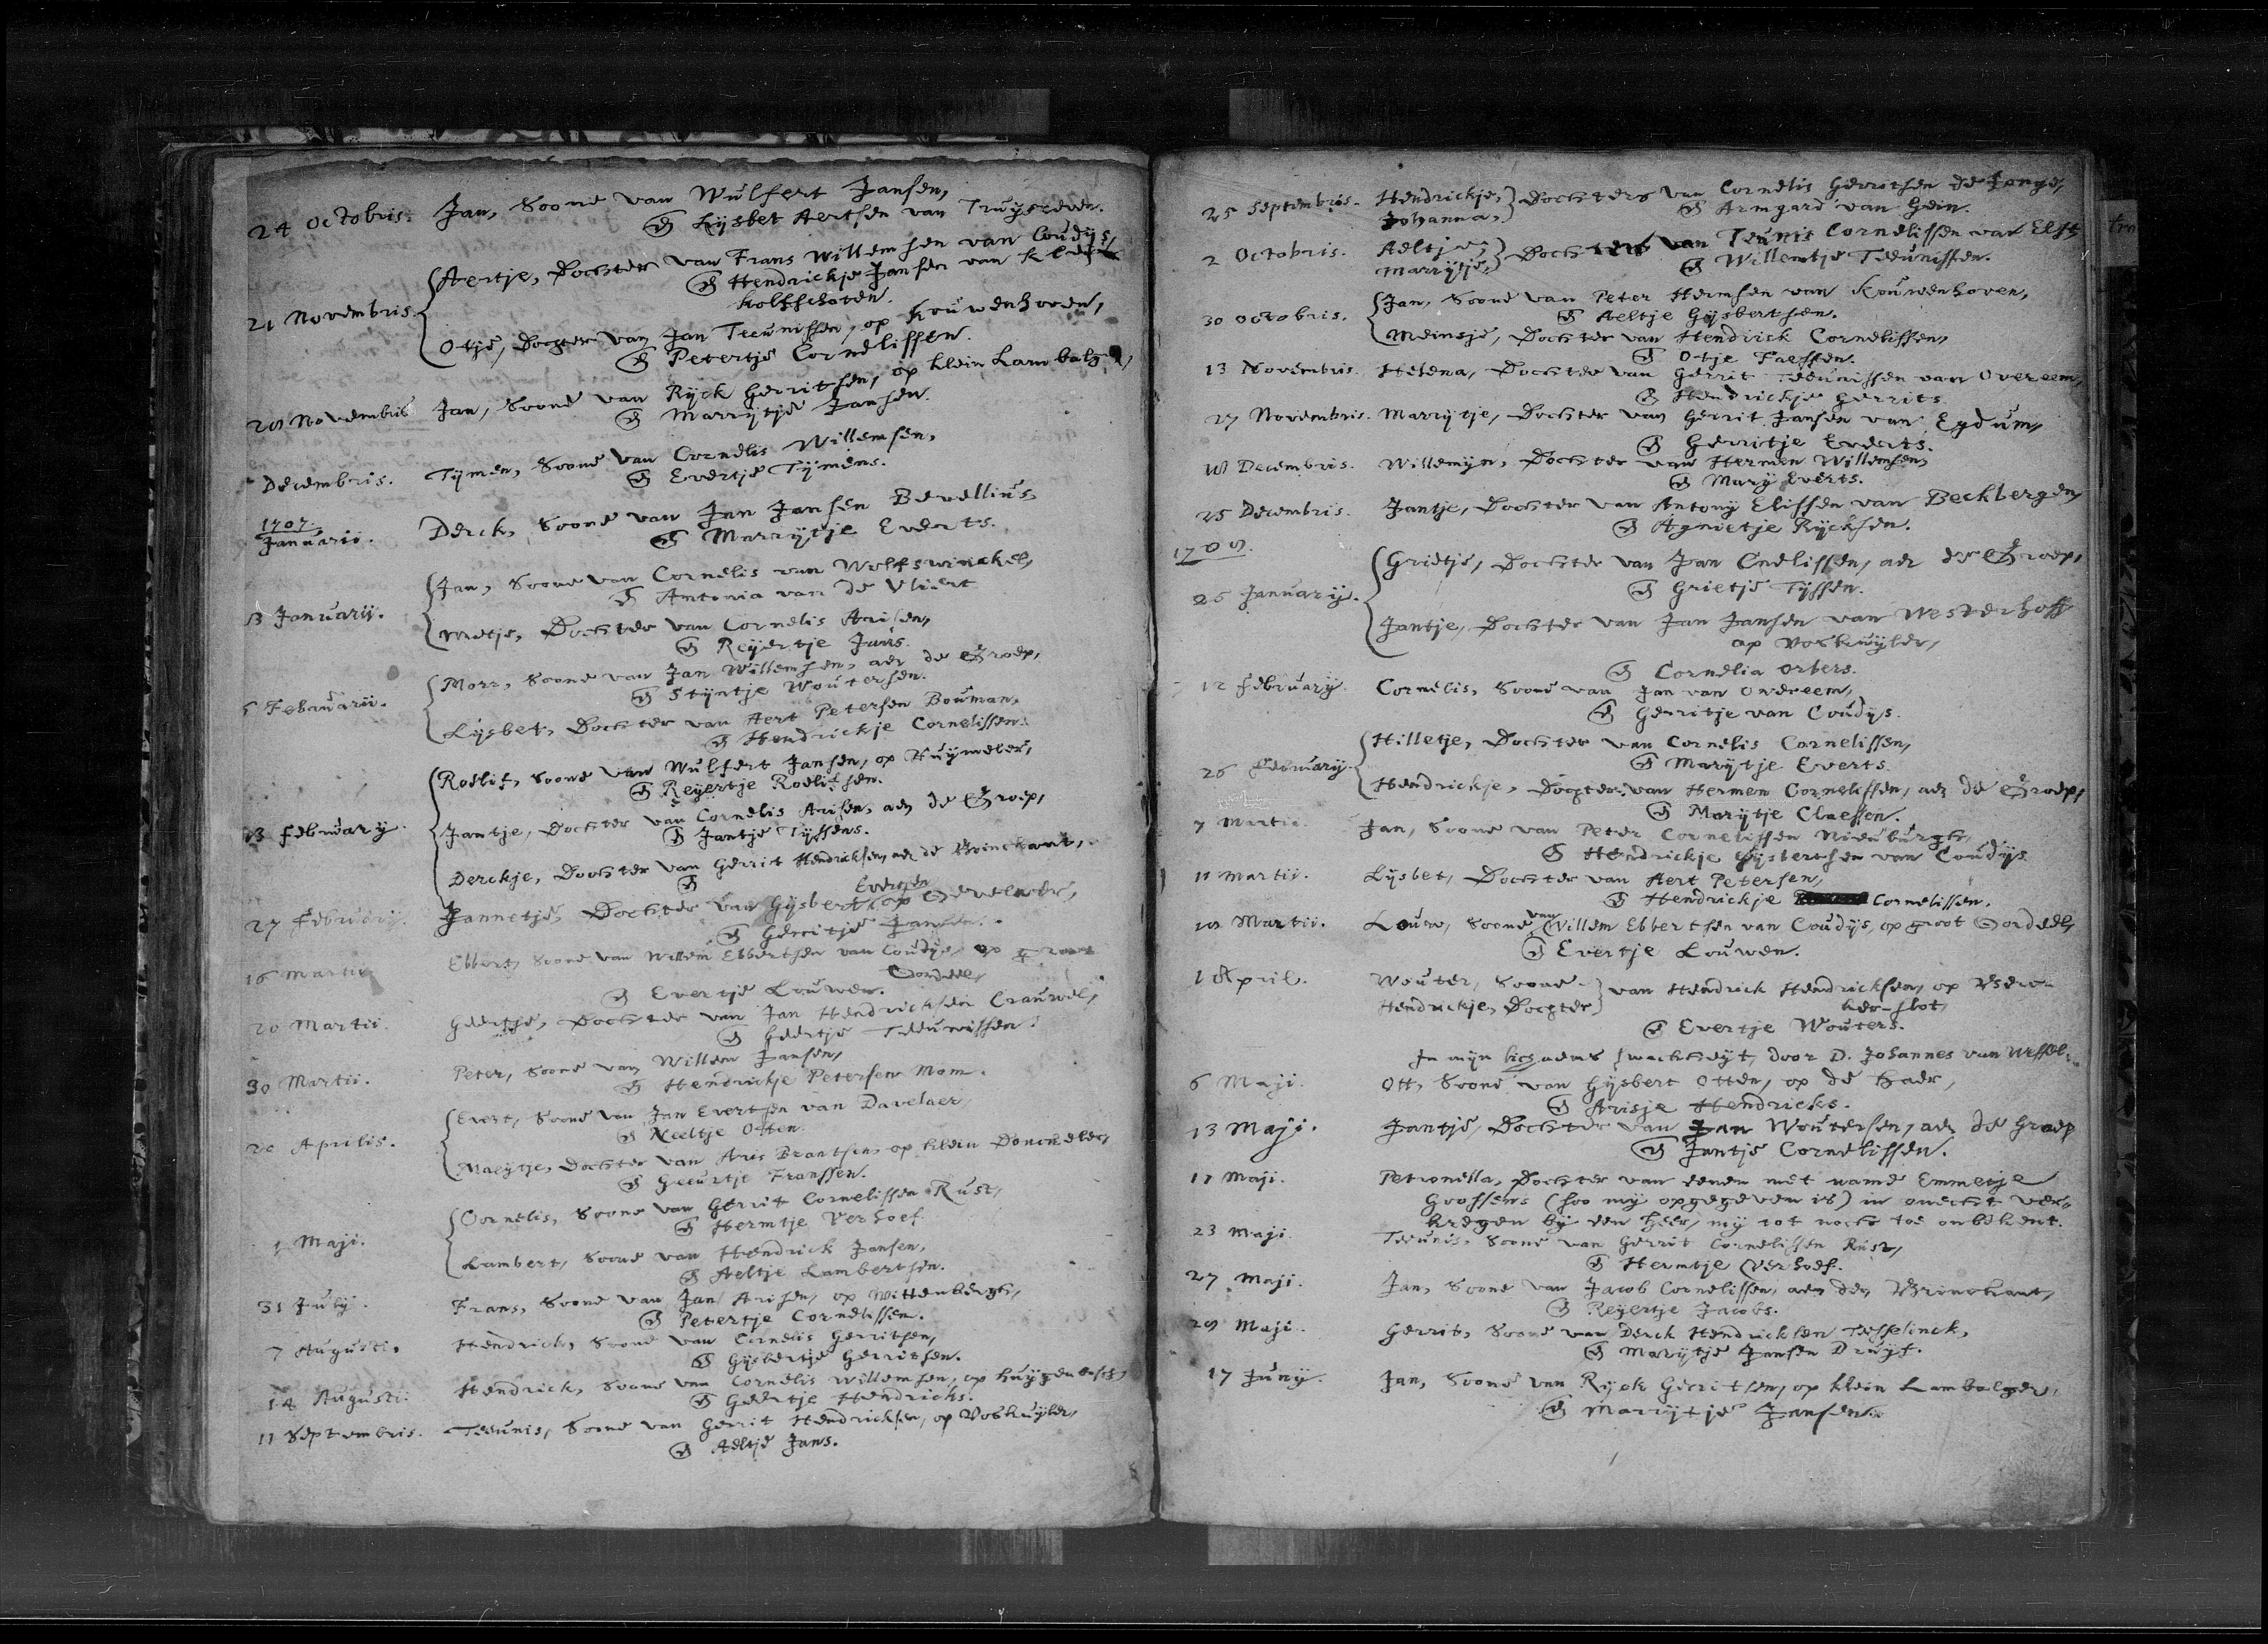 24 Octobris. Jan, Soone van Wulfert Jansen,
& Lijsbet Aertsen van
Aertje, Dochter van Frans Willemsen van Coudijs,
& Hendrickje Jansen van
kolfschoten.
21 Novembris.
Otje, Dochter van Jan Teunissen, op Kouwenhoven,
& Petertje Cornelissen.
28 Novembris Jan, Soone van Ryck Gerritsen, op klein Lambalgen,
& Marrytje Jansen.
Decembris. Tijmen, Soone van Cornelis Willemsen,
& Evertje Tijmens.
1707.
Januarii. Derck, Soone van Jan Jansen Bevellins,
& Marrytje Everts.
Jan, Soone van Cornelis van Wolfswinckel,
& Antonia van de Vliert
13 Januarij.
Metje, Dochter van Cornelis Arisen,
& Reijertje Jans.
Morr, Soone van Jan Willemsen, aen de Groep,
& Stijntje Woutersen.
5 Februarii.
Lijsbet, Dochter van Aert Petersen Bouman,
& Hendrickje Cornelissen.
Roelif, Soone van Wulfert Jansen, op
& Reijertje Roelifsen.
13 February Jantje, Dochter van Cornelis Arisen, aen de Groep,
& Jantje Tijssens.
Derckje, Dochter van Gerrit Hendricksen, aen de Brinckant,
&
Evertsen
27 February. Jannetje, Dochter van Gijsbert, op
& Gerritje Jansen.
16 Martii Ebbert, Soone van Willem Ebbertsen van Coudijs, op groot
Oordeel,
& Evertje Louwen.
20 Martii. Geertje, Dochter van Jan Hendricksen Crauwel,
& Geertje Teunissen.
30 Martii. Peter, Soone van Willem Jansen,
& Hendrickje Petersen Mom.
Evert, Soone van Jan Evertsen van Davelaer,
& Neeltje Otten.
20 Aprilis.
Marijtje, Dochter van Aris Brantsen, op klein Donckelaer,
& Geurtje Franssen.
Cornelis, Soone van Gerrit Cornelissen Rust,
& Hermtje Verhoef.
1 Maji.
Lambert, Soone van Hendrick Jansen,
& Aeltje Lambertsen.
31 July. Frans, Soone van Jan Arisen, op Wittenbergh,
& Petertje Cornelissen.
7 Augusti. Hendrick, Soone van Cornelis Gerritsen,
& Gijsbertje Gerritsen.
14 Augusti. Hendrick, Soone van Cornelis Willemsen, op huijgenbosch,
& Geertje Hendricks.
11 Septembris. Teunis, Soone van Gerrit Hendricksen, op Voskuijlen,
& Aeltje Jans.
25 Septembris. Hendrickje, Dochters van Cornelis Gerritsen de Jonge,
Johanna, & Armgard van Gein.
2 Octobris. Aeltje, Dochters van Teunis Cornelissen van Elst
Marrytje, & Willemtje Teunissen.
Jan, Soone van Peter Hermsen van Kouwenhoven,
& Aeltje Gijsbertsen.
30 Octobris.
Meinsje, Dochter van Hendrick Cornelissen,
& Otje Faessen.
13 Novembris. Helena, Dochter van Gerrit Teunissen van Overeem,
& Hendrickje Gerrits
27 Novembris. Marrytje, Dochter van Gerrit Jansen van Egdum,
& Gerritje Everts.
18 Decembris. Willemijn, Dochter van Hermen Willemsen,
& Mary Everts.
25 Decembris. Jantje, Dochter van Antony Elissen van Beckbergen,
& Agnietje Rycksen.
1708.
Grietje, Dochter van Jan Cnelissen, aen de Groep,
& Grietje Tijssen.
26 January.
Jantje, Dochter van Jan Jansen van Westerhoff
op Voskuijlen,
& Cornelia Orbers.
12 February. Cornelis, Soone van Jan van Overeem,
& Gerritje van Coudijs.
Hilletje, Dochter van Cornelis Cornelissen,
& Marijtje Everts.
26 February.
Hendrickje, Dochter van Hermen Cornelissen, aen de Groep,
& Marijtje Claessen.
7 Martii. Jan, Soone van Peter Cornelissen Nieuburgh,
& Hendrickje Gijsbertsen van Coudijs
11 Martii. Lijsbet, Dochter van Aert Petersen,
& Hendrickje Cornelissen.
18 Martii. Louw, Soone van Willem Ebbertsen van Coudijs, op groot Oordeel,
& Evertje Louwen.
1 April. Wouter, Soone van Hendrick Hendricksen, op
Hendrickje, Dochter ker-slot,
& Evertje Wouters.
In mijn lichaems swackheyt, door D. Johannes van
6 Maji. Ott, Soone van Gijsbert Otten, op de Haer,
& Arisje Hendricks.
13 Maji. Jantje, Dochter van Jan Woutersen, aen de Groep
& Jantje Cornelissen.
17 Maji. Petronella, Dochter van eenen met name Emmetje
Goossens (soo my opgegeven is) in onecht ver-
kregen by een heer, my tot noch toe onbekent.
23 Maji. Teunis, Soone van Gerrit Cornelissen Rust,
& Hermtje Verhoef.
27 Maji. Jan, Soone van Jacob Cornelissen, aen den Brinckant,
& Reijertje Jacobs.
28 Maji. Gerrit, Soone van Derck Hendricksen Tesselinck,
& Marijtje Jansen Druyf.
17 Juny. Jan, Soone van Ryck Gerritsen, op klein Lambalgen,
& Marrytje Jansen.